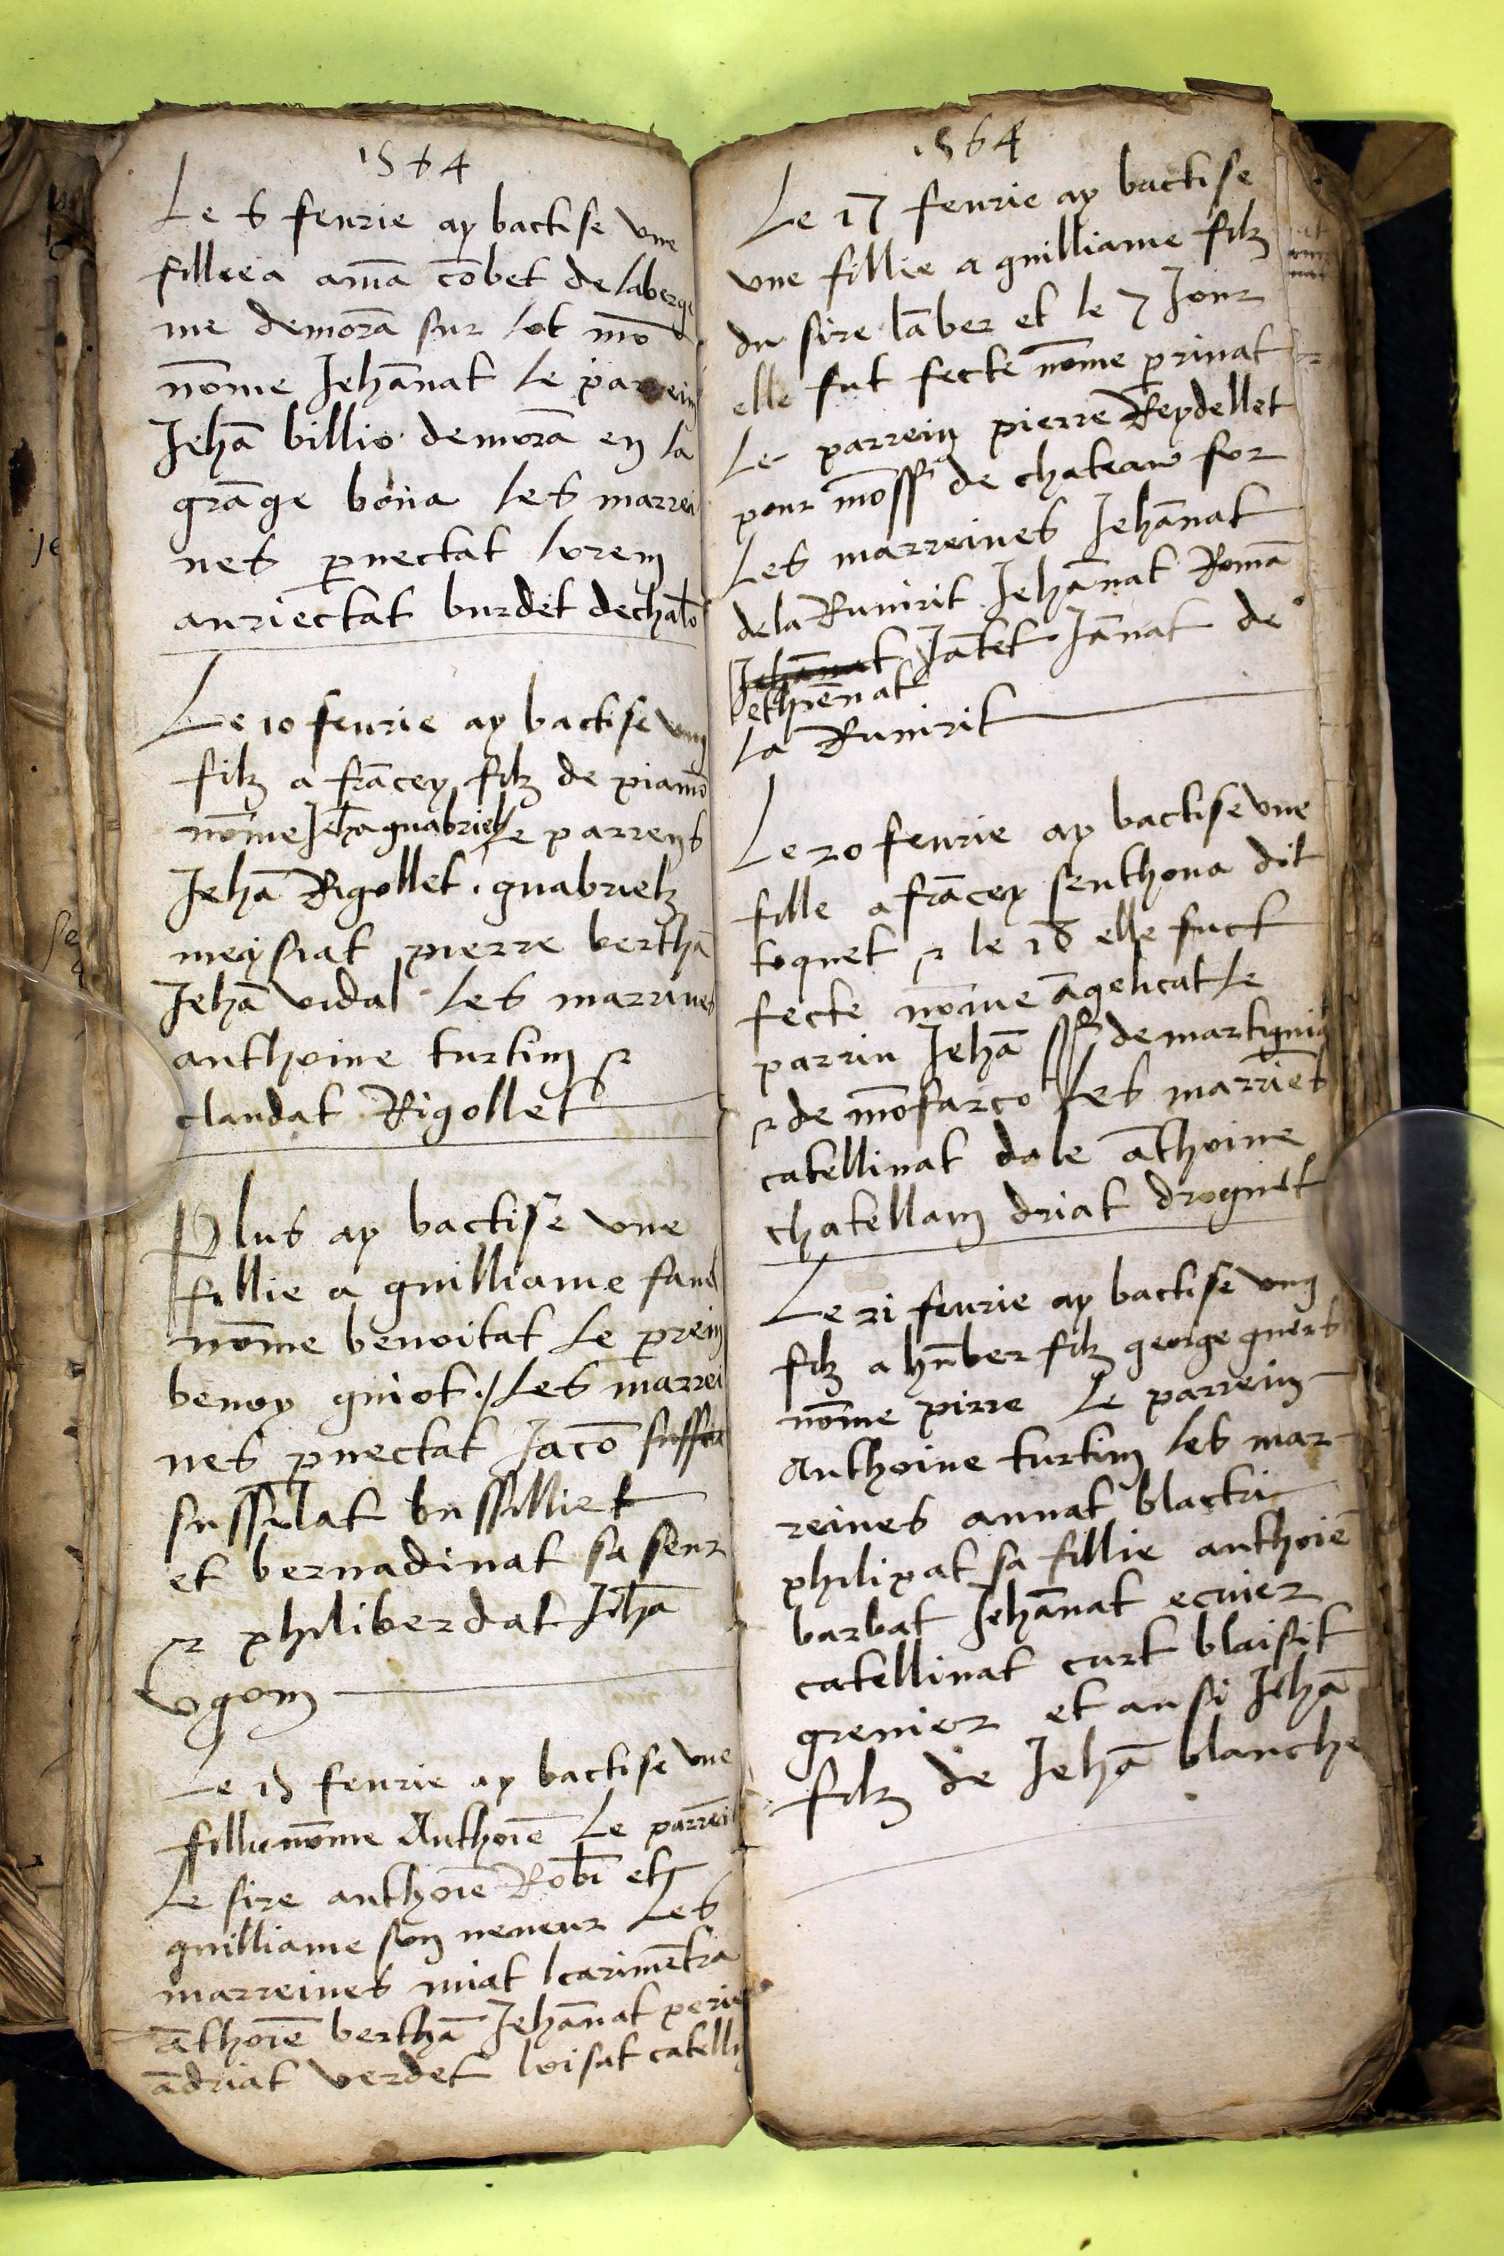 1564
Le 6 feurie ay bactise vne
filliea amā cōbet de laberge
me demorā sur lot mō
nōme Jehānat le parrein
Jehā billio demorā en la
grāge bona les marrei
nes pnectat loren
anriectat burdet dechalō
Le 10 feurie ay bactise vng
filz a frācey filz de piamō
nōme Jehā guabrielz le parrens
Jehā Rigollet guabrielz
meysiat pierre berthā
Jehā vidal les marrines
anthoine turtin et
claudat Rigollet
Plus ay bactise vne
fillie a guilliame
nōme benoitat le prein
benoy guiot / les marrei
nes pnectat Jacō
sussilat bussilliet
et bernadinat sa seur
et philiberdat Jehā
vgon
Le 15 feurie ay bactise vne
fillie nōme Anthoiē le parrein
le sire anthoiē Robī et
guilliame son neueur les
marreines miat carimētra
āthoiē berthā Jehānat
ādriat verdet loisat
1564
Le 17 feurie ay bactise
vne fillie a guilliame filz
du sire lāber et le 7 Jour
elle fut fecte nōme priuat
Le parrein pierre Reydellet
pour mōssr de chateau for
Les marreines Jehānat
de la Ruuirit Jehānat Romā
Jehānat Jātet Jānat de
ethiēnat
la Ruuirit
Le 20 feurie ay bactise vne
fille a frācey senthona dit
toquet et le 18 elle fuct
fecte nōme āgelicat le
parrin Jehā sr de martignia
et de mōfarco les marriēs
catellinat dale āthoine
chatellan driat droguet
Le 21 feurie ay bactise vng
filz a hūber filz george
nōme pirre le parrein
Anthoine turtin les mar
reines annat blactri
philipat sa fillie anthoiē
barbat Jehānat ecuier
catellinat curt blaisit
grenier et ausi Jehā
filz de Jehā blanche